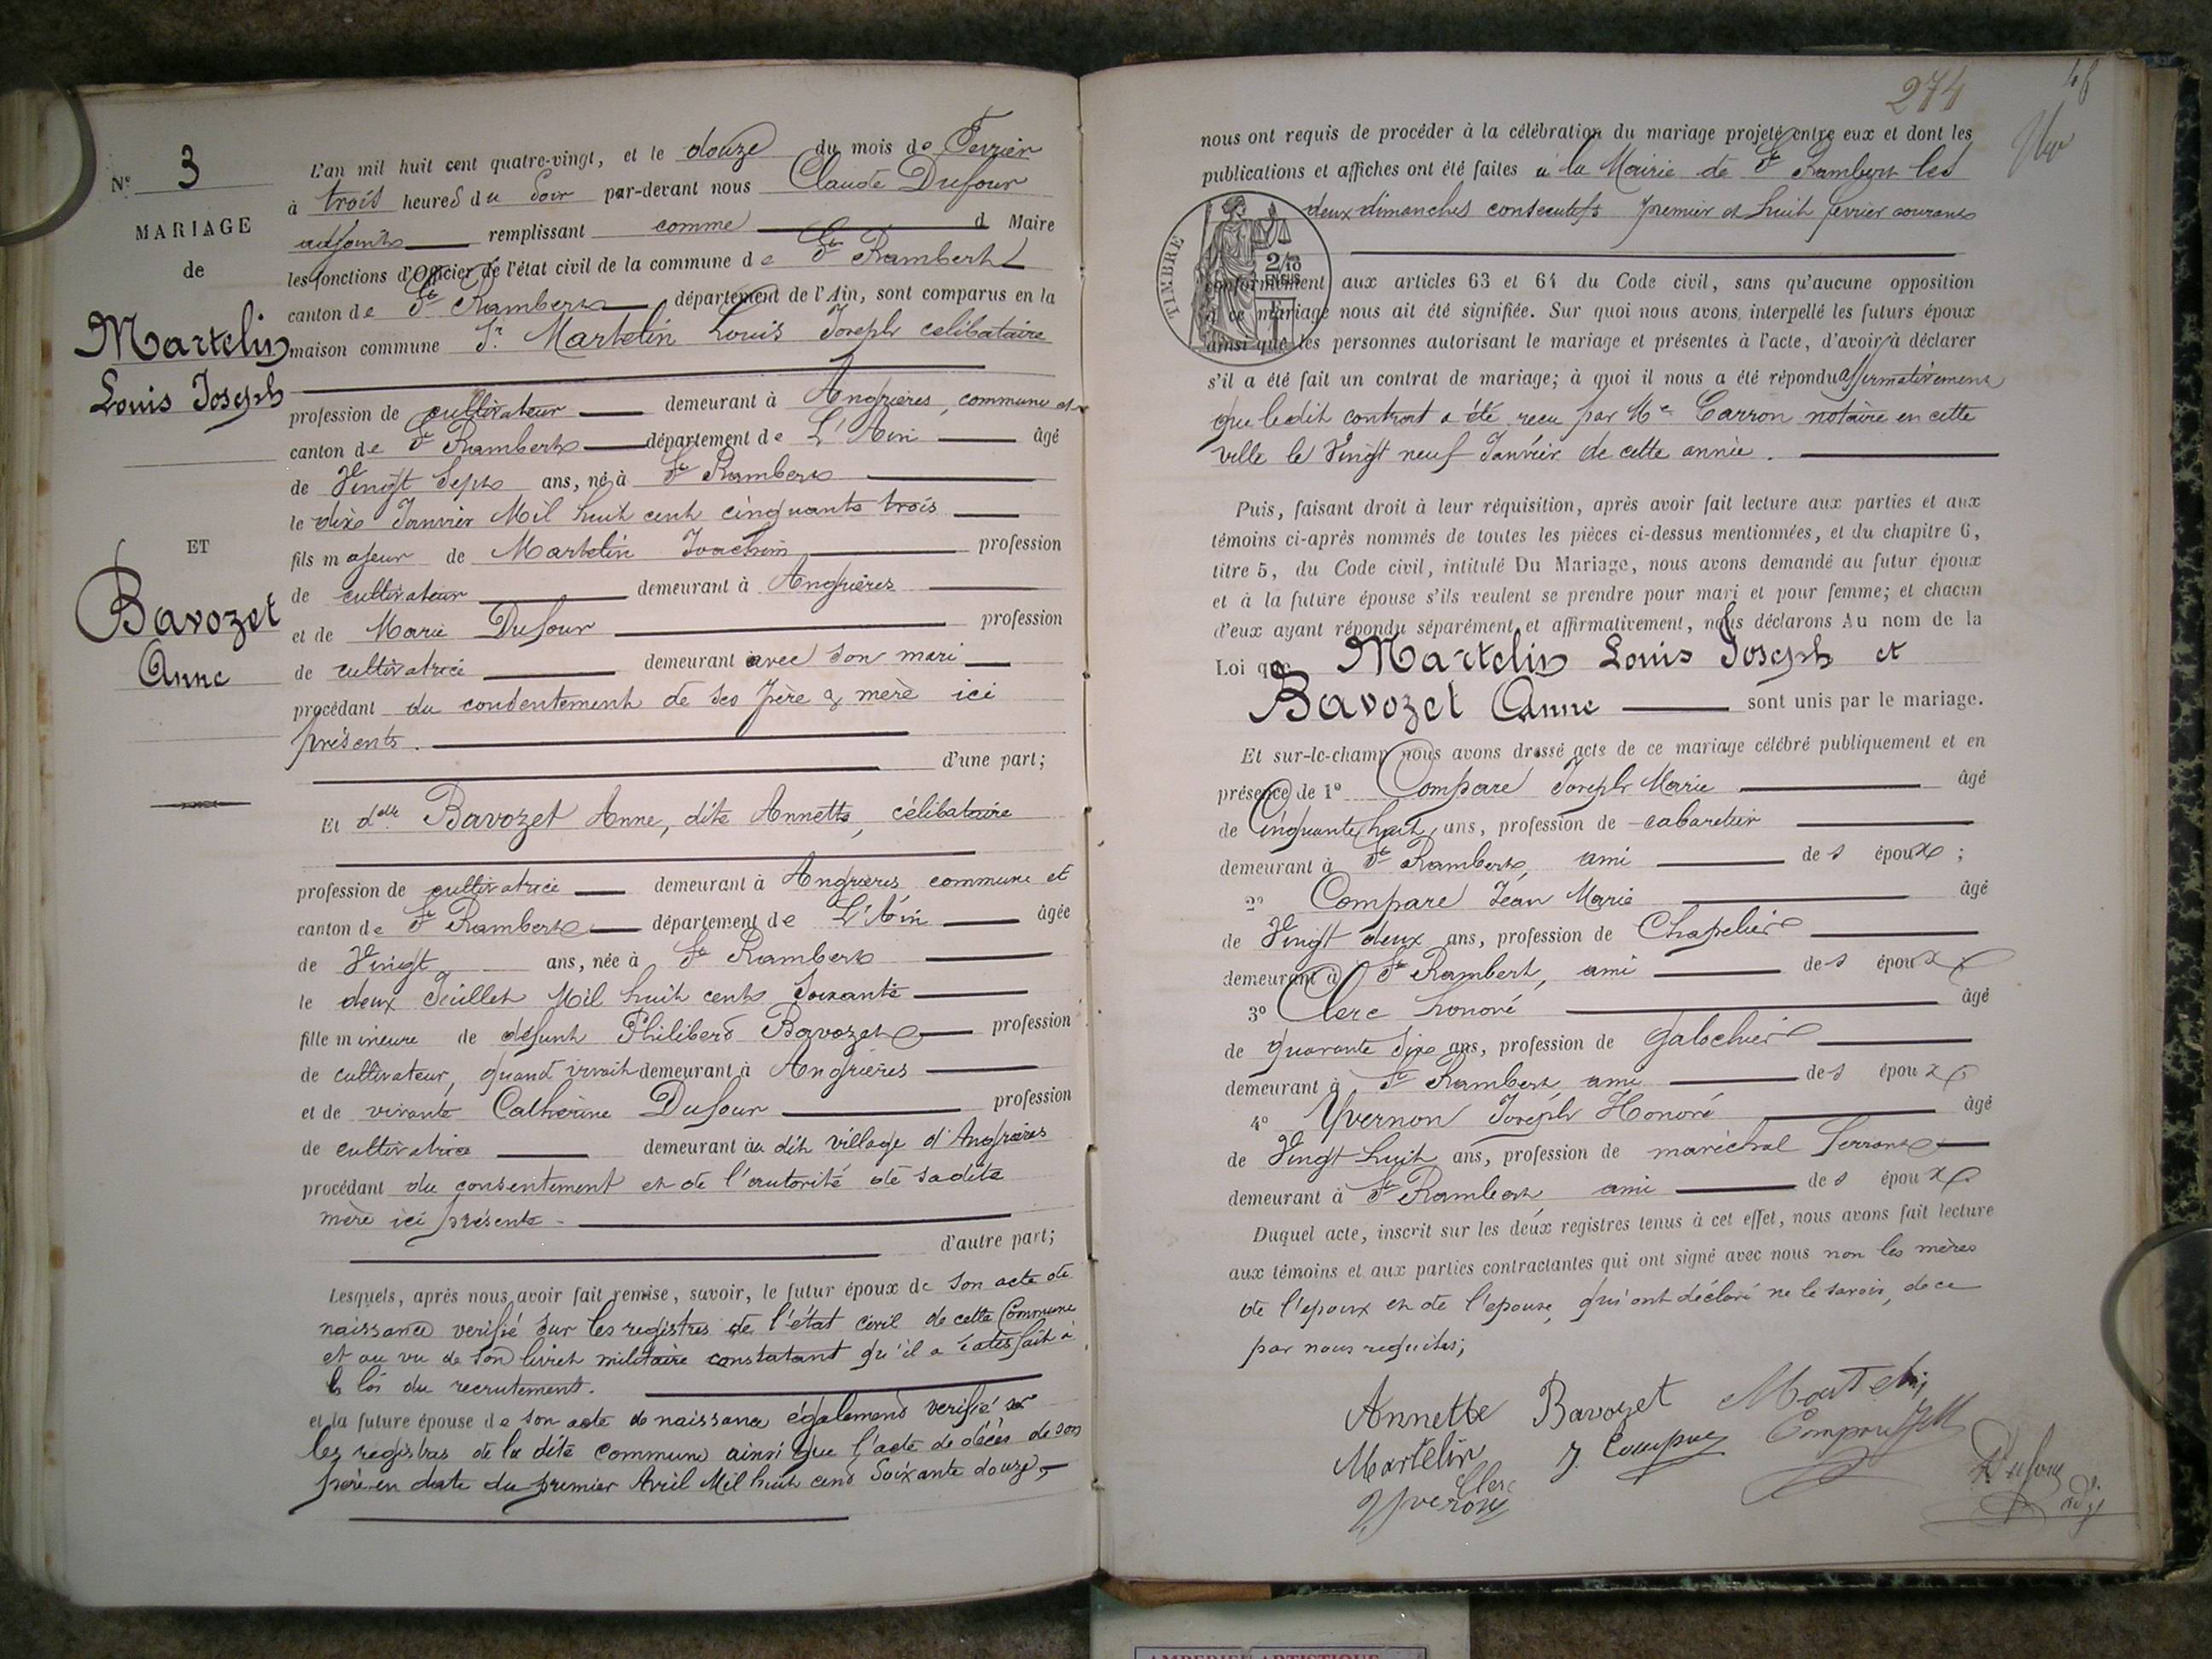 N° 3
MARIAGE
de
Martelin
Louis Joseph
ET
Bavozet
Anne
L'an mil huit cent quatre-vingt, et le douze du mois de Fevrier
à trois heures du Soir par-devant nous Claude Dufour
adjoint remplissant comme d Maire
les fonctions d'Officier de l'état civil de la commune de St Rambert
canton de St Rambert département de l'Ain, sont comparus en la
maison commune Sr. Martelin Louis Joseph celibataire
profession de cultivateur demeurant à Angrières, commune et
canton de St Rambert département de L'Ain âgé
de Vingt Sept ans, né à St Rambert
le dix Janvier Mil huit cent cinquante trois
fils majeur de Martelin Joachim profession
de cultivateur demeurant à Angrières
et de Marie Dufour profession
de cultivatrice demeurant avec son mari
procédant du consentement de ses père & mère ici
présents.
d'une part;
Et delle Bavozet Anne, dite Annette, célibataire
profession de cultivatrice demeurant à Angrières commune et
canton de St Rambert département de L'Ain âgée
de Vingt ans, née à St Rambert
le deux Juillet Mil huit cent Soixante
fille mineure de defunt Philibert Bavozet profession
de cultivateur, quand vivait demeurant à Angrières
et de vivante Catherine Dufour profession
de cultivatrice demeurant au dit village d'Angrières
procédant du consentement et de l'autorité de sadite
mère ici présente -
d'autre part;
Lesquels, après nous avoir fait remise, savoir, le futur époux de son acte de
naissance verifié sur les registres de l'état civil de cette Commune
et au vu de son livret militaire constatant qu'il a satisfait à
la loi du recrutement.
et la future épouse de son acte de naissance également verifié sur
les registres de la dite commune ainsi que l'acte de décès de son
père en date du premier Avril Mil huit cent Soixante douze,
274
nous ont requis de procéder à la célébration du mariage projeté entre eux et dont les
publications et affiches ont été faites à la Mairie de St Rambert les
deux dimanches consecutifs premier et huit fevrier courant
TIMBRE
2/10
EN SUS
conformément aux articles 63 et 64 du Code civil, sans qu'aucune opposition
à ce mariage nous ait été signifiée. Sur quoi nous avons interpellé les futurs époux
ainsi que les personnes autorisant le mariage et présentes à l'acte, d'avoir à déclarer
s'il a été fait un contrat de mariage; à quoi il nous a été répondu affirmativement
que ledit contrat a été reçu par Me Carron notaire en cette
ville le Vingt neuf Janvier de cette année.
Puis, faisant droit à leur réquisition, après avoir fait lecture aux parties et aux
témoins ci-après nommés de toutes les pièces ci-dessus mentionnées, et du chapitre 6,
titre 5, du Code civil, intitulé Du Mariage, nous avons demandé au futur époux
et à la future épouse s'ils veulent se prendre pour mari et pour femme; et chacun
d'eux ayant répondu séparément et affirmativement, nous déclarons Au nom de la
Loi que Martelin Louis Joseph et
Bavozet Anne sont unis par le mariage.
Et sur-le-champ nous avons dressé acte de ce mariage célébré publiquement et en
présence de 1° Compare Joseph Marie âgé
de Cinquante huit ans, profession de cabaretier
demeurant à St Rambert, ami des époux ;
2° Compare Jean Marie âgé
de Vingt deux ans, profession de Chapelier
demeurant à St Rambert, ami des époux
3° Clerc honoré âgé
de quarante six ans, profession de galochier
demeurant à St Rambert ami des époux
4° Yvernon Joseph Honoré âgé
de Vingt huit ans, profession de maréchal ferrant
demeurant à St Rambert ami des époux
Duquel acte, inscrit sur les deux registres tenus à cet effet, nous avons fait lecture
aux témoins et aux parties contractantes qui ont signé avec nous non les mères
de l'epoux et de l'epouse, qui ont déclaré ne le savoir, de ce
par nous requises;
Annette Bavozet Martelin
Martelin J. Compare Compare JM
Clerc
Yvernon
Dufour adj.
AMBERIEU ARTISTIQUE